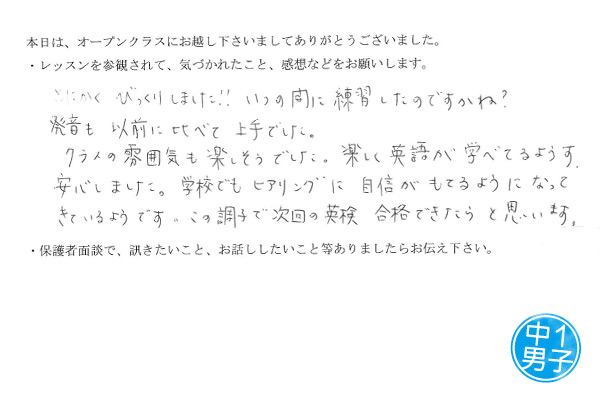 本日は、オープンクラスにお越し下さいましてありがとうございました。
・レッスンを参観されて、気づかれたこと、感想などをお願いします。
とにかく びっくりしました!! いつの間に練習したのですかね？
発音も以前に比べて上手でした。
クラスの雰囲気も楽しそうでした。楽しく英語が学べてるようす、
安心しました。学校でもヒアリングに自信がもてるようになって
きているようです。この調子で次回の英検 合格できたらと思います。
・保護者面談で、訊きたいこと、お話ししたいこと等ありましたらお伝え下さい。
中1
男子